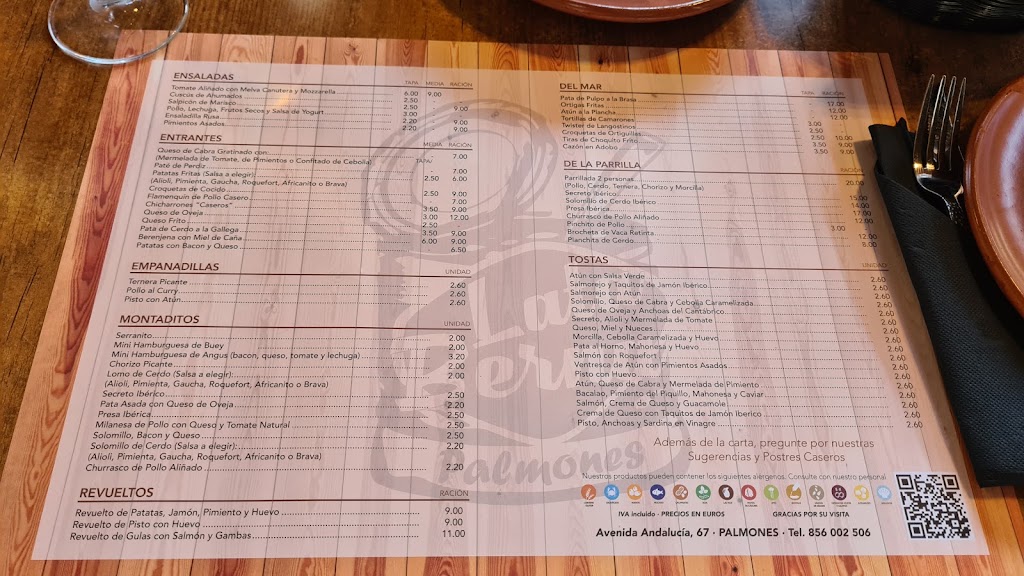 ENSALADAS
TAPA MEDIA RACIÓN
Tomate Aliñado con Melva Canutera y Mozzarella 6.00 9.00
Cuscús de Ahumados 2.50
Salpicón de Marisco 2.50 9.00
Pollo, Lechuga, Frutos Secos y Salsa de Yogurt 3.00
Ensaladilla Rusa 2.20 9.00
Pimientos Asados 2.20 9.00
ENTRANTES
MEDIA RACIÓN
Queso de Cabra Gratinado con 7.00
(Mermelada de Tomate, de Pimientos o Confitado de Cebolla) TAPA
Paté de Perdiz 7.00
Patatas Fritas (Salsa a elegir) 2.50 6.00
(Alioli, Pimienta, Gaucha, Roquefort, Africanito o Brava)
Croquetas de Cocido 2.50 9.00
Flamenquín de Pollo Casero 7.00
Chicharrones "Caseros" 3.50 9.00
Queso de Oveja 3.00 12.00
Queso Frito 2.50
Pata de Cerdo a la Gallega 3.50 9.00
Berenjena con Miel de Caña 6.00 9.00
Patatas con Bacon y Queso 6.50
EMPANADILLAS
UNIDAD
Ternera Picante 2.60
Pollo al Curry 2.60
Pisto con Atún 2.60
MONTADITOS
UNIDAD
Serranito 2.00
Mini Hamburguesa de Buey 2.00
Mini Hamburguesa de Angus (bacon, queso, tomate y lechuga) 3.20
Chorizo Picante 2.00
Lomo de Cerdo (Salsa a elegir) 2.00
(Alioli, Pimienta, Gaucha, Roquefort, Africanito o Brava)
Secreto Ibérico 2.50
Pata Asada con Queso de Oveja 2.20
Presa Ibérica 2.50
Milanesa de Pollo con Queso y Tomate Natural 2.50
Solomillo, Bacon y Queso 2.50
Solomillo de Cerdo (Salsa a elegir): 2.20
(Alioli, Pimienta, Gaucha, Roquefort, Africanito o Brava)
Churrasco de Pollo Aliñado 2.20
REVUELTOS
RACIÓN
Revuelto de Patatas, Jamón, Pimiento y Huevo 9.00
Revuelto de Pisto con Huevo 9.00
Revuelto de Gulas con Salmón y Gambas 11.00
DEL MAR
TAPA RACIÓN
Pata de Pulpo a la Brasa 17.00
Ortigas Fritas 12.00
Atún a la Plancha 12.00
Tortillas de Camarones 3.00
Twister de Langostinos 2.50
Croquetas de Ortiguillas 2.50 10.00
Tiras de Choquito Frito 3.50 9.00
Cazón en Adobo 3.50 9.00
DE LA PARRILLA
RACIÓN
Parrillada 2 personas 20.00
(Pollo, Cerdo, Ternera, Chorizo y Morcilla)
Secreto Ibérico 15.00
Solomillo de Cerdo Ibérico 14.00
Presa Ibérica 17.00
Churrasco de Pollo Aliñado 12.00
Pinchito de Pollo 3.00
Brocheta de Vaca Retinta 12.00
Planchita de Cerdo 8.00
TOSTAS
UNIDAD
Atún con Salsa Verde 2.60
Salmorejo y Taquitos de Jamón Ibérico 2.60
Salmorejo con Atún 2.60
Solomillo, Queso de Cabra y Cebolla Caramelizada 2.60
Queso de Oveja y Anchoas del Cantábrico 2.60
Secreto, Alioli y Mermelada de Tomate 2.60
Queso, Miel y Nueces 2.60
Morcilla, Cebolla Caramelizada y Huevo 2.60
Pata al Horno, Mahonesa y Huevo 2.60
Salmón con Roquefort 2.60
Ventresca de Atún con Pimientos Asados 2.60
Pisto con Huevo 2.60
Atún, Queso de Cabra y Mermelada de Pimiento 2.60
Bacalao, Pimiento del Piquillo, Mahonesa y Caviar 2.60
Salmón, Crema de Queso y Guacamole 2.60
Crema de Queso con Taquitos de Jamón Iberico 2.60
Pisto, Anchoas y Sardina en Vinagre 2.60
Además de la carta, pregunte por nuestras
Sugerencias y Postres Caseros
Nuestros productos pueden contener los siguientes alergenos. Consulte con nuestro personal
IVA incluido · PRECIOS EN EUROS GRACIAS POR SU VISITA
Avenida Andalucía, 67 · PALMONES · Tel. 856 002 506
La
Palmones